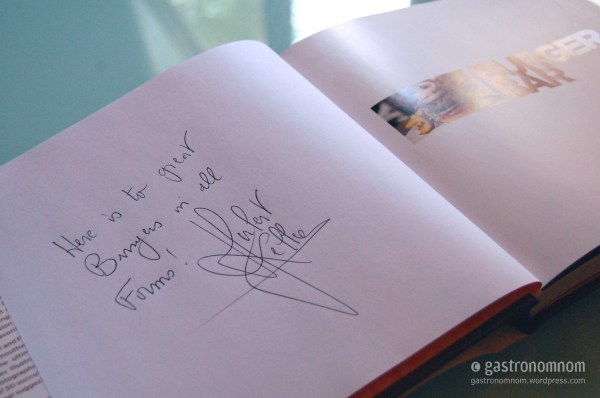 Here is to great
Burgers in all
Forms!
Hubert
Keller
BURGER
BAR
© gastronomnom
gastronomnom.wordpress.com